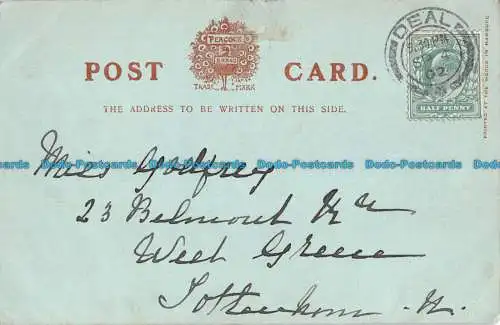 PEACOCK
BRAND
TRADE MARK
POST CARD.
THE ADDRESS TO BE WRITTEN ON THIS SIDE.
DEAL
02
HALF PENNY
PRINTED AT THE WORKS IN
Dodo-Postcards Dodo-Postcards Dodo-Postcards Dodo-Postcards
Miss Godfrey
23 Belmont
West Green
Tottenham. N.